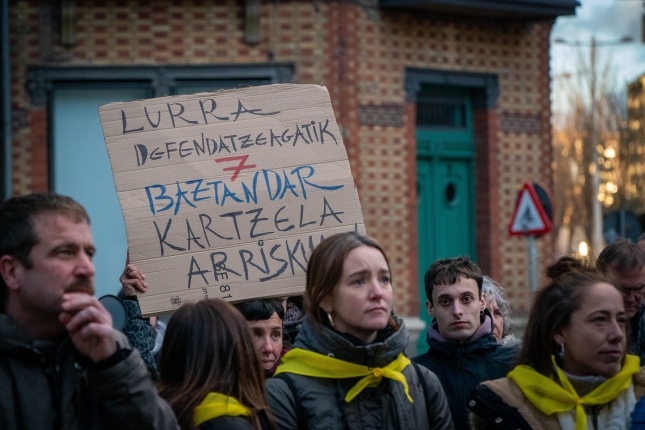 LURRA
DEFENDATZEAGATIK
7
BAZTANDAR
KARTZELA
ARRISKU